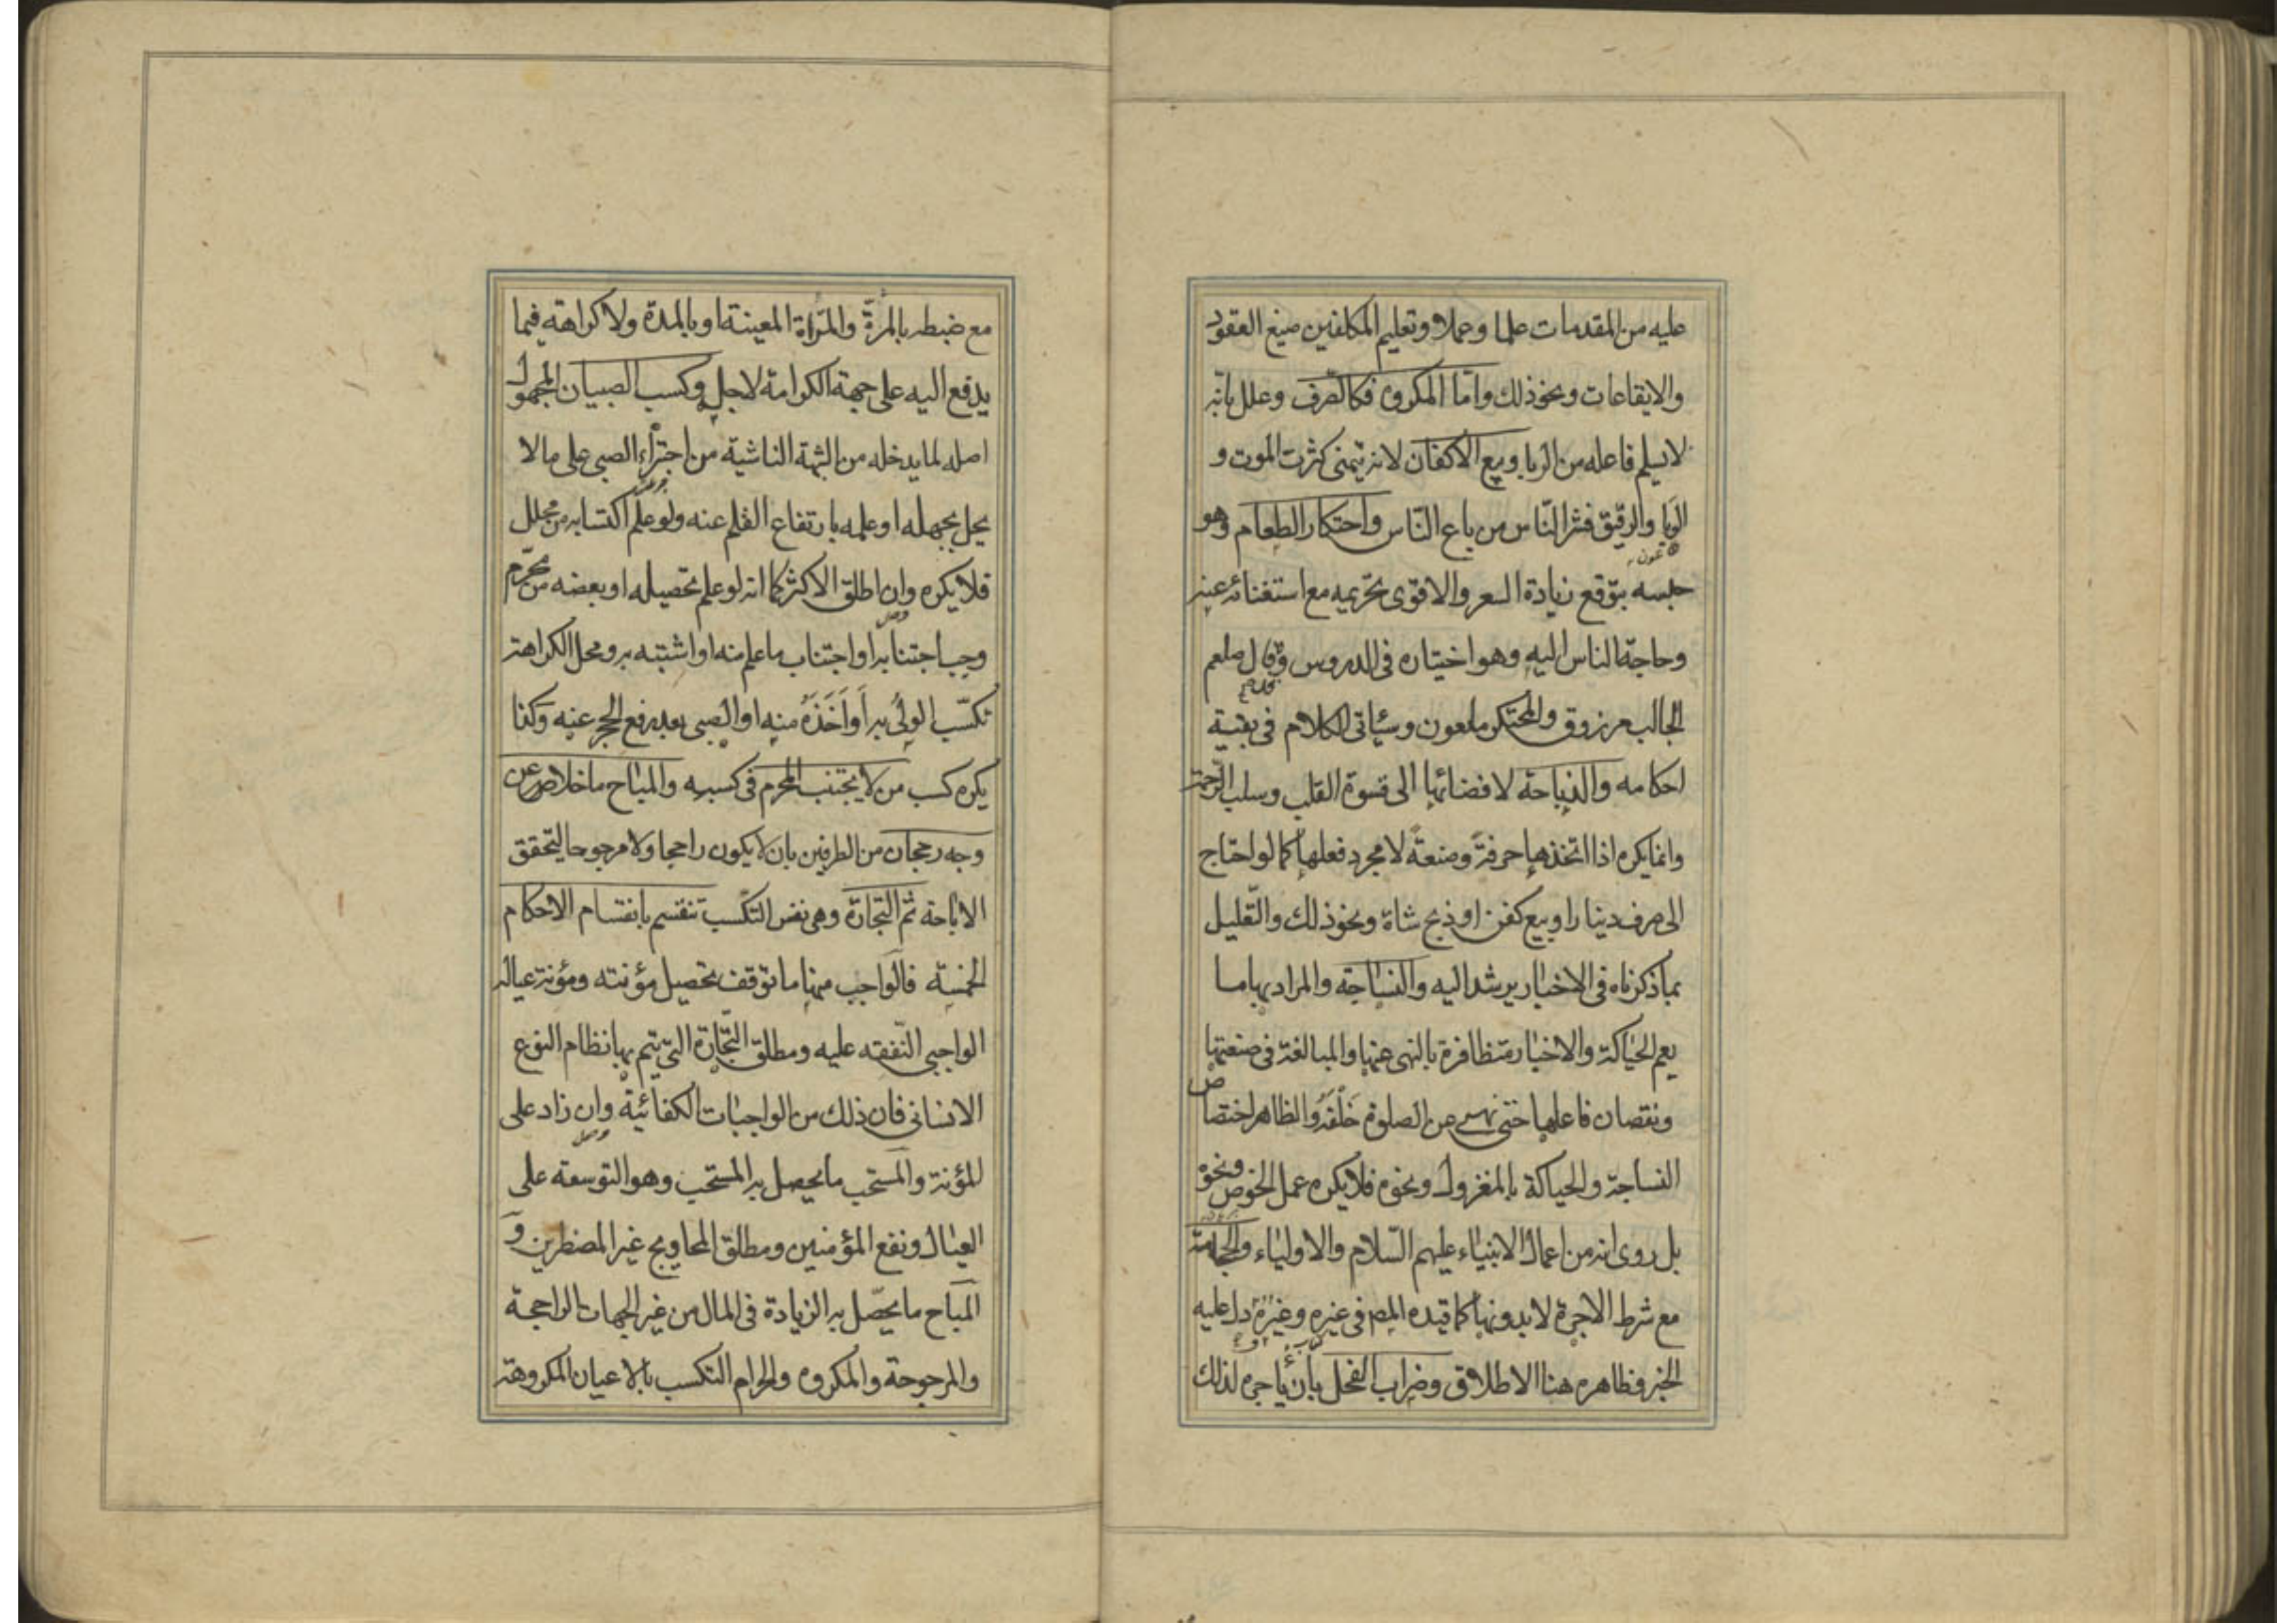 عليه من المقدمات علما وعملا وتعليم المكلفين صيغ العقود
والايقاعات ونحو ذلك واما المكروه فكالصّرف وعلل بانّه
لا يسلم فاعله من الربا وبيع الاكفان لانه يتمنى كثرت الموت و
الوبا والرقيق فشر النّاس من باع النّاس واحتكار الطعام وهو
حبسه بتوقع زيادة السعر والاقوى تحريمه مع استغنائه عنه
وحاجة الناس اليه وهو اختياره في الدروس وقال صلعم
الجالب مرزوق والمحتكر ملعون وسياتى الكلام في بقية
احكامه والذباحة لافضائها الى قسوة القلب وسلب الرّحمة
وانما يكره اذا اتخذها حرفة وصنعة لا مجرد فعلها كما لو احتاج
الى صرف دينار او بيع كفن او ذبح شاة ونحو ذلك والتّعليل
بما ذكرناه في الاخبار يرشد اليه والنساجة والمراد بها ما
يعم الحياكة والاخبار متظافرة بالنهى عنها والمبالغة في صنعتها
ونقصان فاعلها حتى نهى عن الصلوة خَلْفَهُ والظاهر اختصاص
النساجة والحياكة بالمغزول ونحوه فلا يكره عمل الخوص ونحوه
بل روى انه من اعمال الانبياء عليهم السّلام والاولياء والحجامة
مع شرط الاجرة لا بدونها كما قيده المصـ في غيره وغيره دل عليه
الخبر فظاهره هنا الاطلاق وضراب الفحل بأن يأجره لذلك
مع ضبطه بالمرّة والمرّاة المعينة او بالمدة ولا كراهة فيما
يدفع اليه على جهة الكرامة لاجله وكسب الصبيان المجهول
اصله لما يدخله من الشبهة الناشية من اجتراء الصبى على ما لا
يحل بجهله او علمه بارتفاع القلم عنه ولو علم اكتسابه من محلل
فلا يكره وان اطلق الاكثر كما انه لو علم تحصيله او بعضه من محرّم
وجب اجتنابه او اجتناب ما علم منه او اشتبه به ومحل الكراهة
تكسّب الولىّ به أو أَخَذَهُ منه او الصبى بعد رفع الحجر عنه وكذا
يكره كسب من لا يجتنب المحرم في كسبه والمباح ما خلا عن
وجه رجحان من الطرفين بان لا يكون راجحا ولا مرجوحا ليتحقق
الاباحة ثم التجارة وهى نفس التكسّب تنقسم بانقسام الاحكام
الخمسة فالواجب منها ما توقف تحصيل مؤنته ومؤنة عياله
الواجبى النّفقة عليه ومطلق التّجارة التى يتم بها نظام النوع
الانسانى فان ذلك من الواجبات الكفائية وان زاد على
المؤنة والمستحب ما يحصل به المستحب وهو التوسعة على
العيال ونفع المؤمنين ومطلق المحاويج غير المضطرين و
المباح ما يحصّل به الزيادة في المال من غير الجهات الراجحة
والمرجوحة والمكروه والحرام التكسب بالاعيان المكروهة